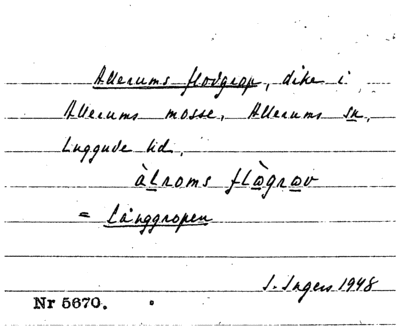 Allerums flodgrop, dike i
Allerums mosse, Allerums sn,
Luggude hd.
àlroms flàgrav
= Långgropen
I. Ingers 1948
Nr 5670.